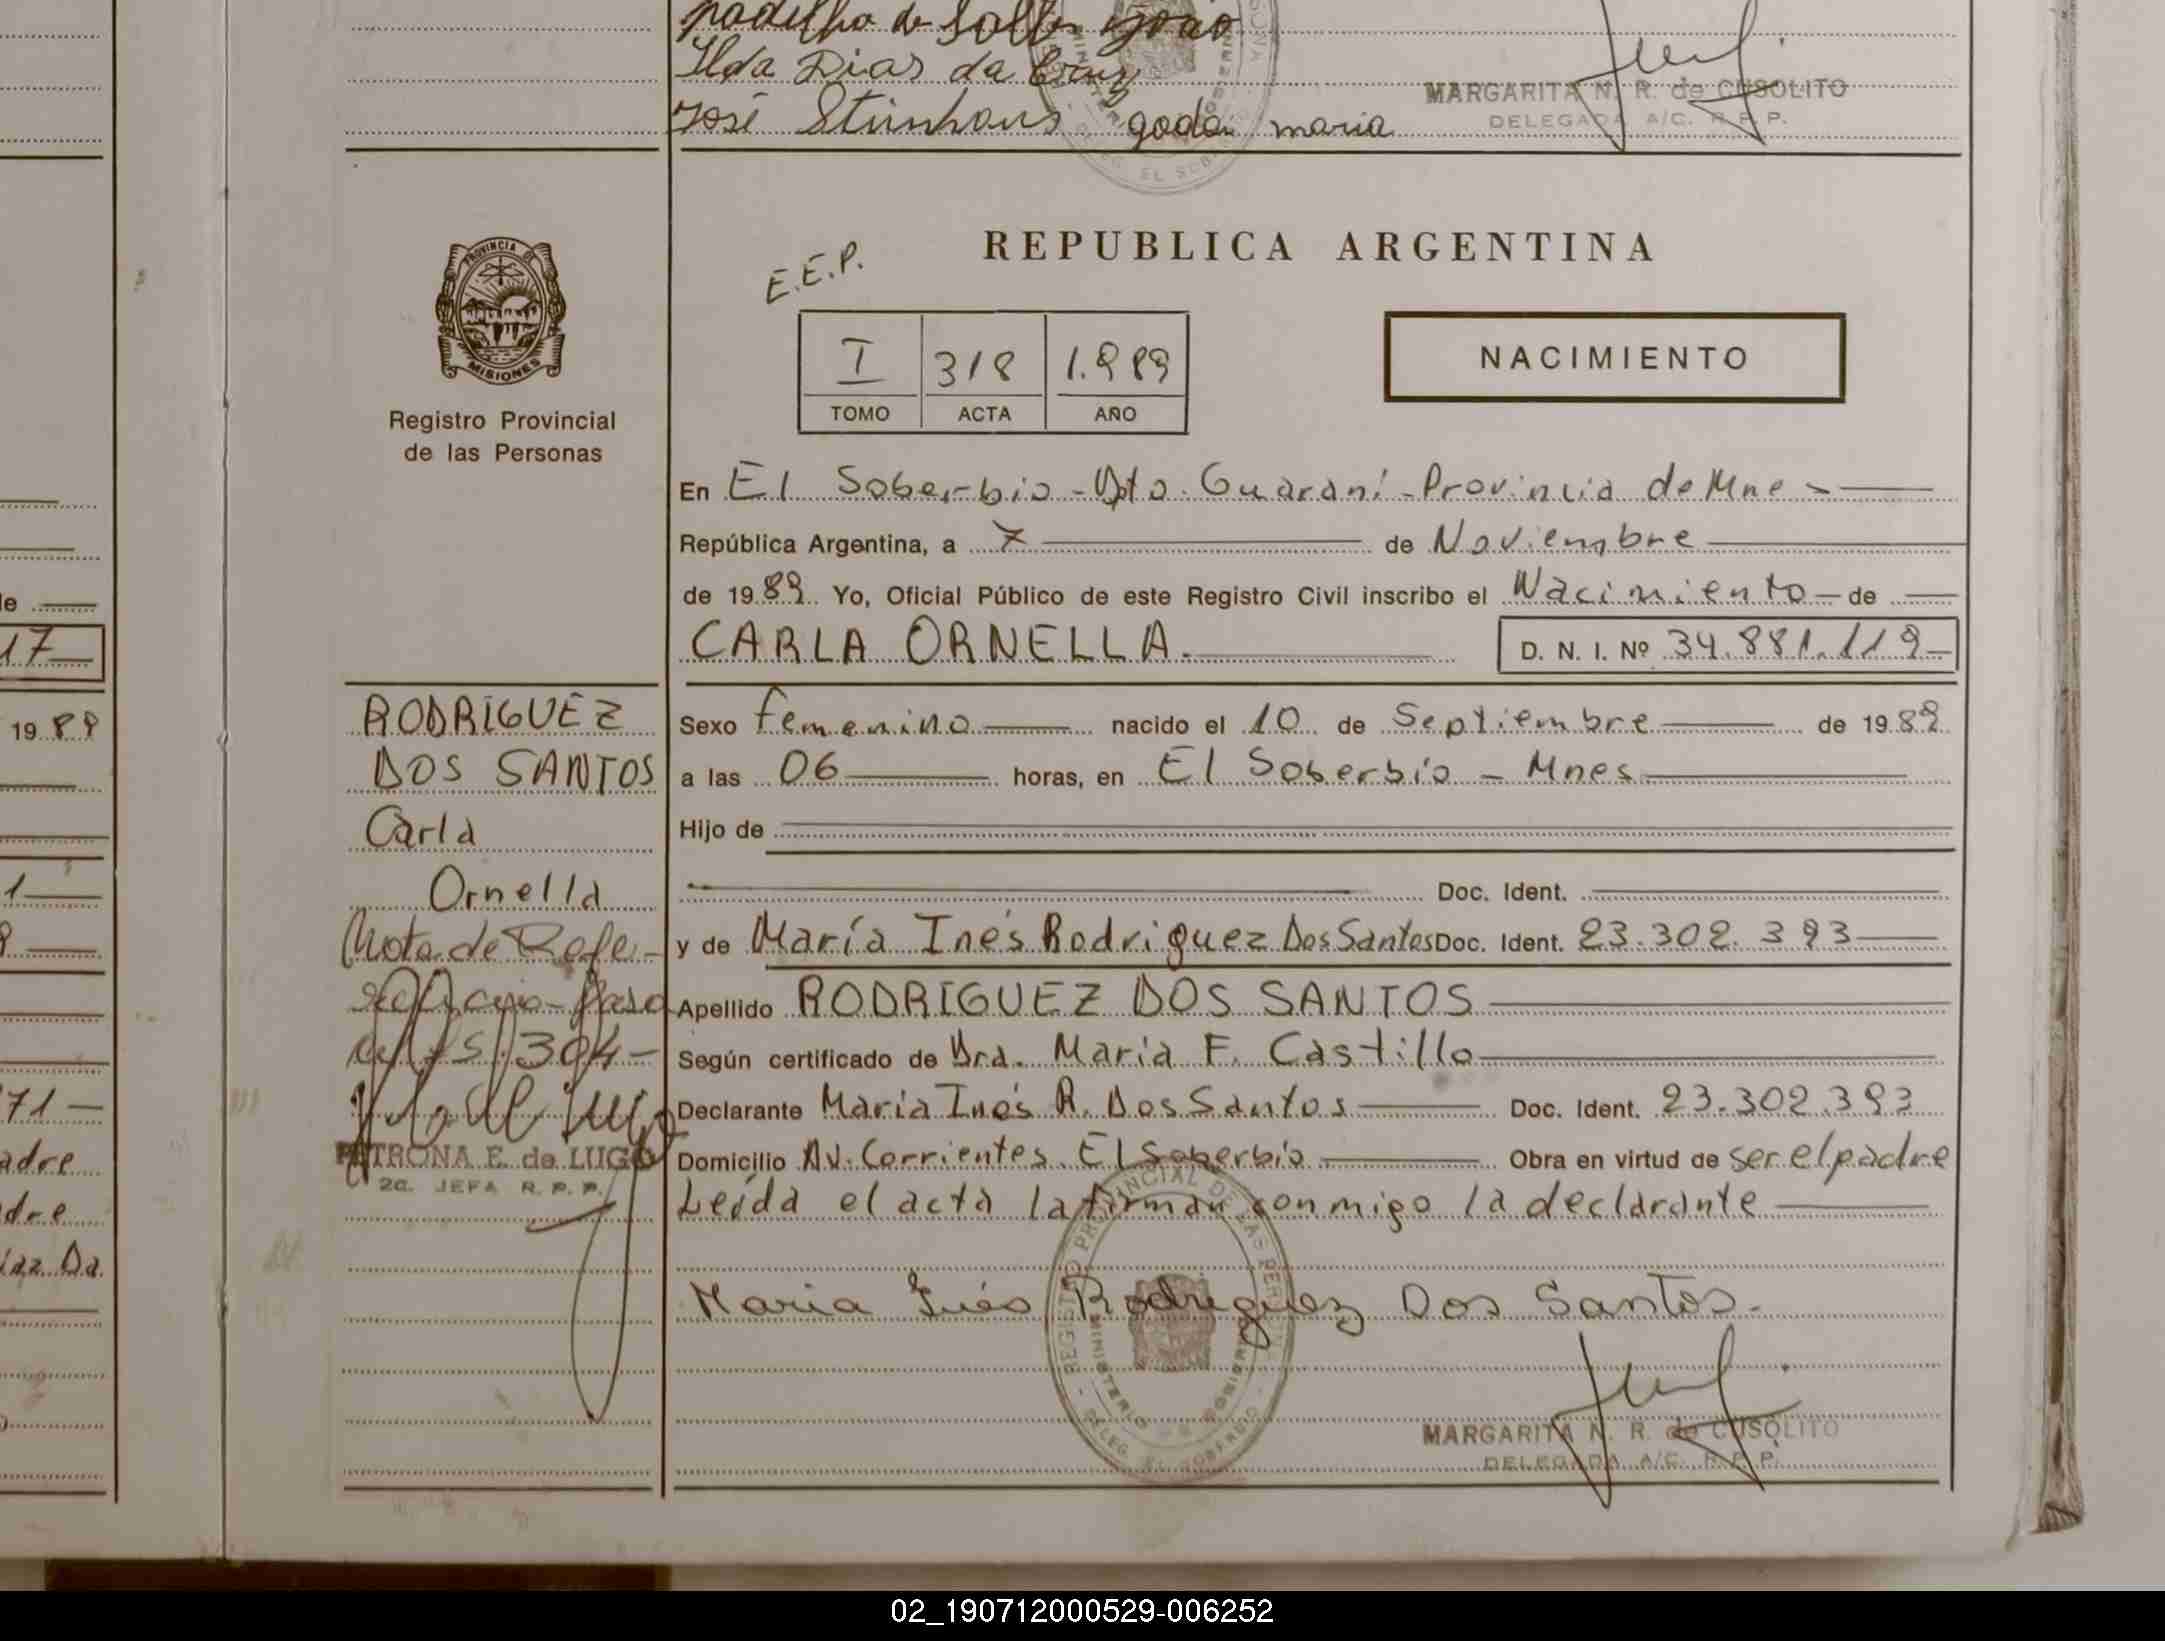 padilha de Salles João
Ilda Dias da Cruz
José Steinhaus godoi maria
MARGARITA N. R. de CUSOLITO
DELEGADA A/C. R.P.P.
PROVINCIA DE
MISIONES
Registro Provincial
de las Personas
REPUBLICA ARGENTINA
E.E.P.
I 318 1.989
TOMO ACTA AÑO
NACIMIENTO
En El Soberbio - Dpto. Guaraní - Provincia de Mne -
República Argentina, a 7 de Noviembre
de 1989 Yo, Oficial Público de este Registro Civil inscribo el Nacimiento de
CARLA ORNELLA.
D. N. I. Nº 34.881.119
RODRIGUEZ
DOS SANTOS
Carla
Ornella
Nota de Refe-
rencia - Paso
al fs. 304 -
PETRONA E. de LUGO
2a. JEFA R. P. P.
Sexo femenino nacido el 10 de Septiembre de 1989
a las 06 horas, en El Soberbio - Mnes
Hijo de
Doc. Ident.
y de María Inés Rodriguez Dos Santos Doc. Ident. 23.302.393
Apellido RODRIGUEZ DOS SANTOS
Según certificado de Dra. Maria F. Castillo
Declarante Maria Inés R. Dos Santos Doc. Ident. 23.302.393
Domicilio Av. Corrientes El Soberbio Obra en virtud de ser el padre
Leída el acta la firman conmigo la declarante
Maria Inés Rodriguez Dos Santos.
REGISTRO PROVINCIAL DE LAS PERSONAS
MINISTERIO DE GOBIERNO
DELEG. EL SOBERBIO
MARGARITA N. R. de CUSOLITO
DELEGADA A/C. R.P.P.
de
17
1989
1
71
adre
dre
iaz Da
02_190712000529-006252